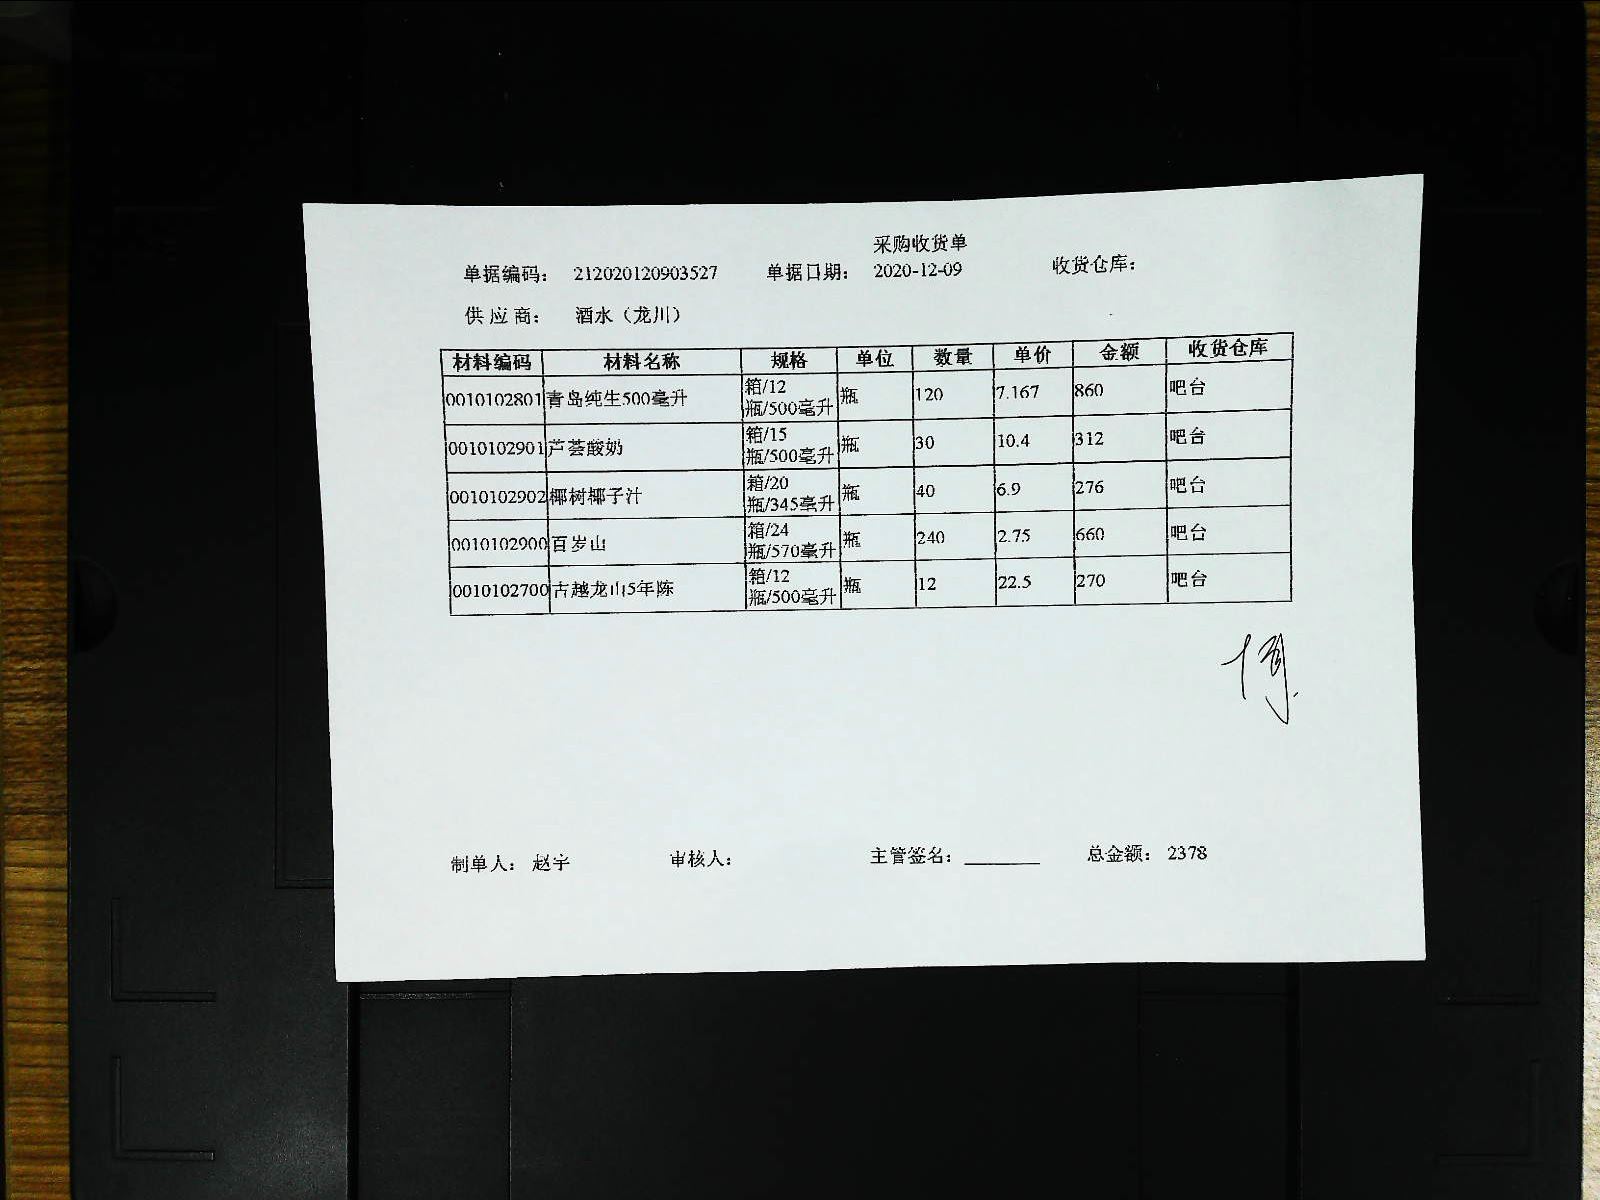 采购收货单
单据编码： 212020120903527 单据日期： 2020-12-09 收货仓库：
供应商： 酒水（龙川）
材料编码 材料名称 规格 单位 数量 单价 金额 收货仓库
0010102801 青岛纯生500毫升 箱/12瓶/500毫升 瓶 120 7.167 860 吧台
0010102901 芦荟酸奶 箱/15瓶/500毫升 瓶 30 10.4 312 吧台
0010102902 椰树椰子汁 箱/20瓶/345毫升 瓶 40 6.9 276 吧台
0010102900 百岁山 箱/24瓶/570毫升 瓶 240 2.75 660 吧台
0010102700 古越龙山5年陈 箱/12瓶/500毫升 瓶 12 22.5 270 吧台
制单人： 赵宇 审核人： 主管签名： 总金额： 2378